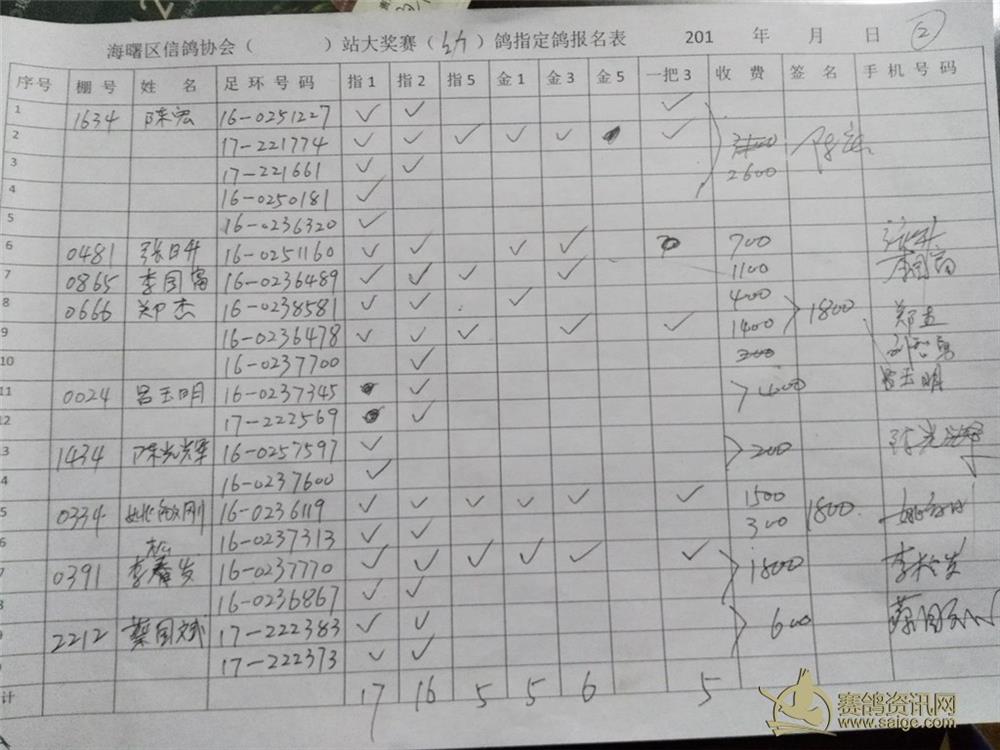 海曙区信鸽协会（　　　）站大奖赛（幼）鸽指定鸽报名表　201　年　月　日　②
序号 棚号 姓名 足环号码 指1 指2 指5 金1 金3 金5 一把3 收费 签名 手机号码
1 1634 陈宏 16-0251227 ✓ ✓ ✓
2 17-221774 ✓ ✓ ✓ ✓ ✓ ✓
3 17-221661 ✓ ✓ 2600
4 16-0250181 ✓
5 16-0236320 ✓
6 0481 张日升 16-0251160 ✓ ✓ ✓ ✓ 700
7 0865 李国富 16-0236489 ✓ ✓ ✓ ✓ 1100 李国富
8 0666 郑杰 16-0238581 ✓ ✓ ✓ 400 1800 郑杰
9 16-0236478 ✓ ✓ ✓ ✓ ✓ 1400
10 16-0237700 ✓ 200
11 0024 吕玉明 16-0237345 ✓ 400 吕玉明
12 17-222569 ✓
3 1434 陈光辉 16-0257597 ✓ 200 陈光辉
4 16-0237600 ✓
5 0334 姚敏刚 16-0236119 ✓ ✓ ✓ ✓ ✓ ✓ 1500 1800
6 16-0237313 ✓ ✓ 300
7 0391 李松岁 16-0237770 ✓ ✓ ✓ ✓ ✓ ✓ 1800 李松岁
8 16-0236867 ✓ ✓
9 2212 蔡国斌 17-222383 ✓ ✓ 600 蔡国斌
17-222373 ✓ ✓
计 17 16 5 5 6 5
赛鸽资讯网
www.saige.com